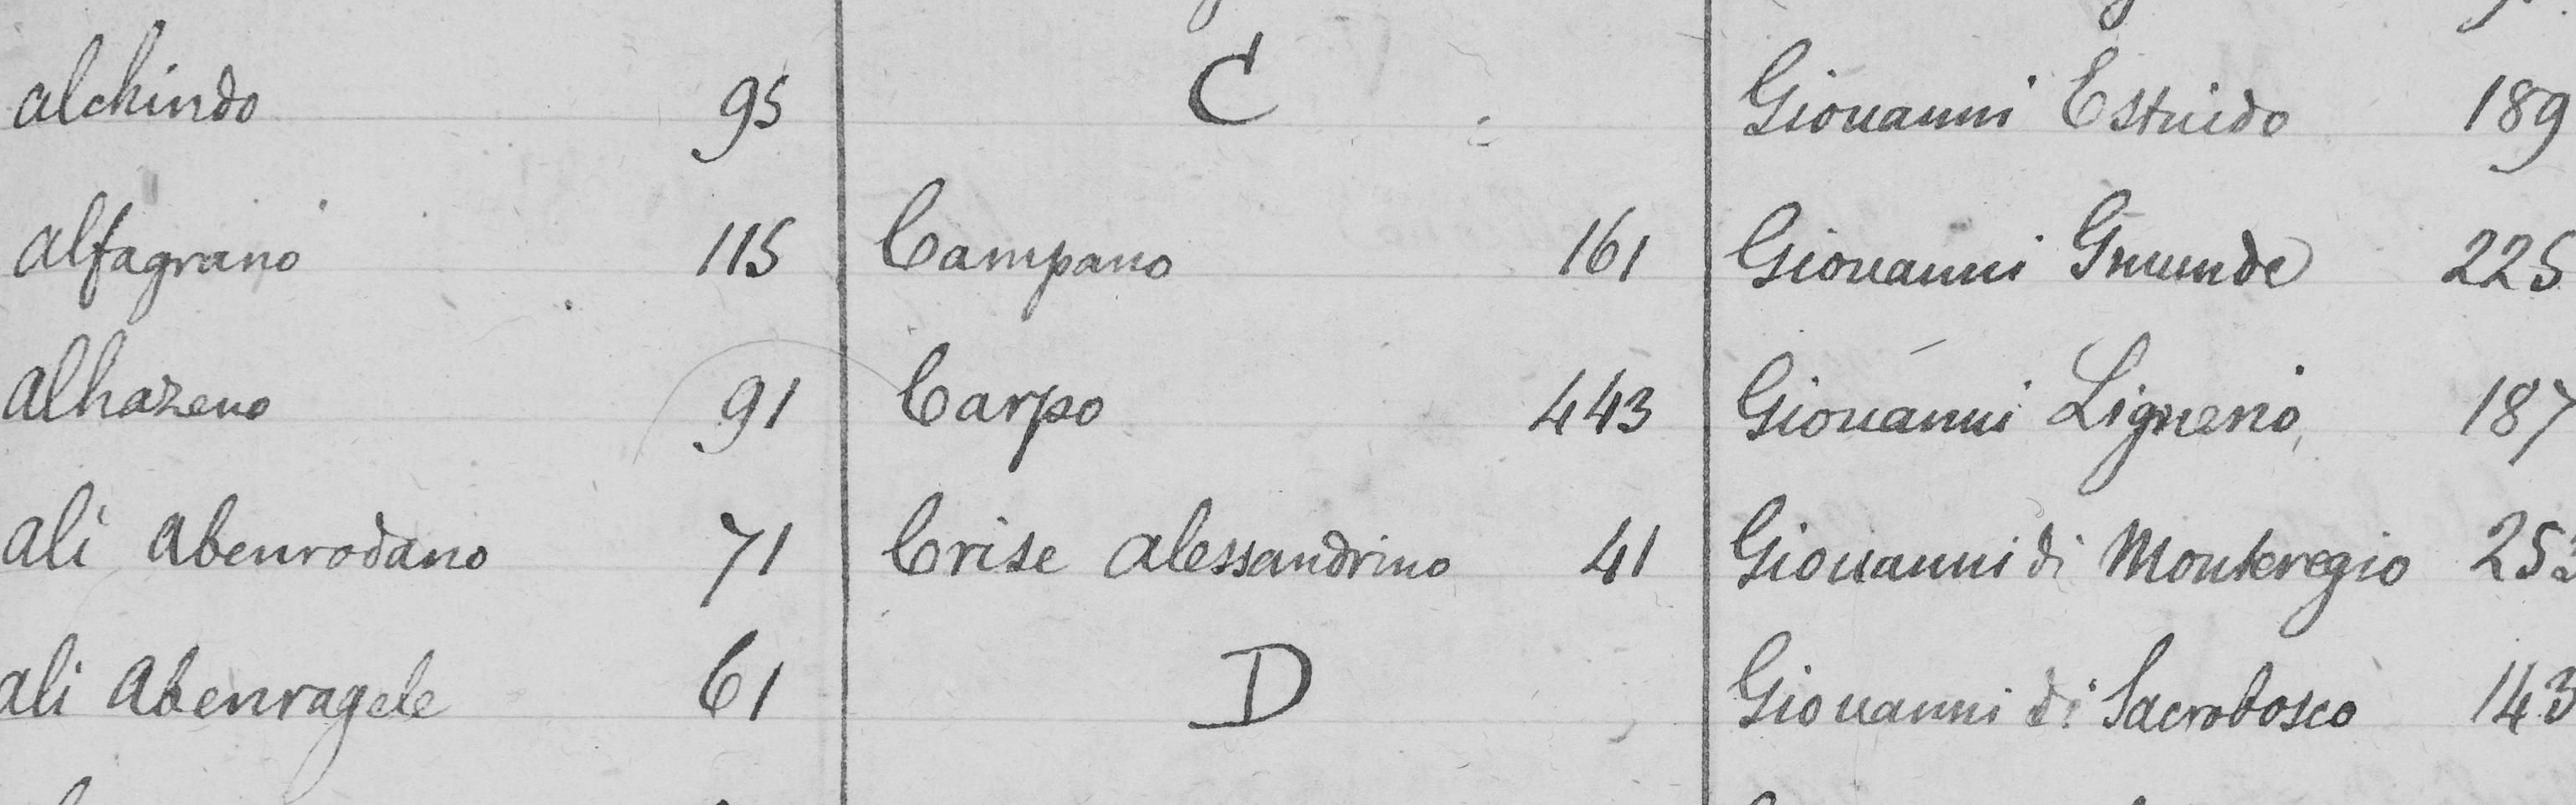 alchindo 95
alfagrano 115
alhazeno 91
ali abenrodano 71
ali abenragele 61
C
Campano 161
Carpo 443
Crise alessandrino 41
D
Giouanni Estuido 189
Giouanni Gmunde 225
Giouanni Lignerio 187
Giouanni di Monteregio 253
Giouanni di Sacrobosco 143